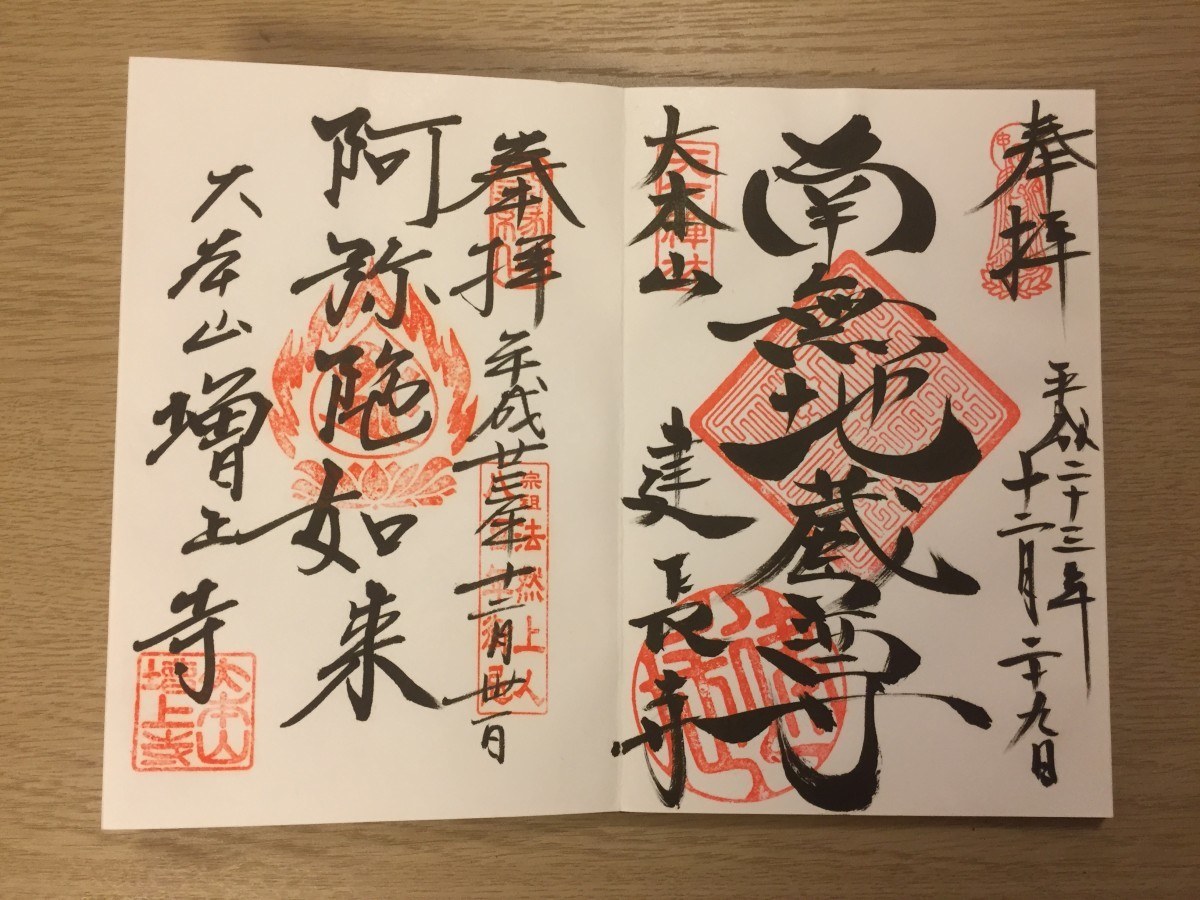 奉拝
申
平成二十三年
十二月二十九日
南無地蔵尊
大本山
天下禅林
建長寺
奉拝
平成廿三年十二月卅一日
宗祖法然上人
阿弥陀如来
大本山増上寺
大本山
増上寺